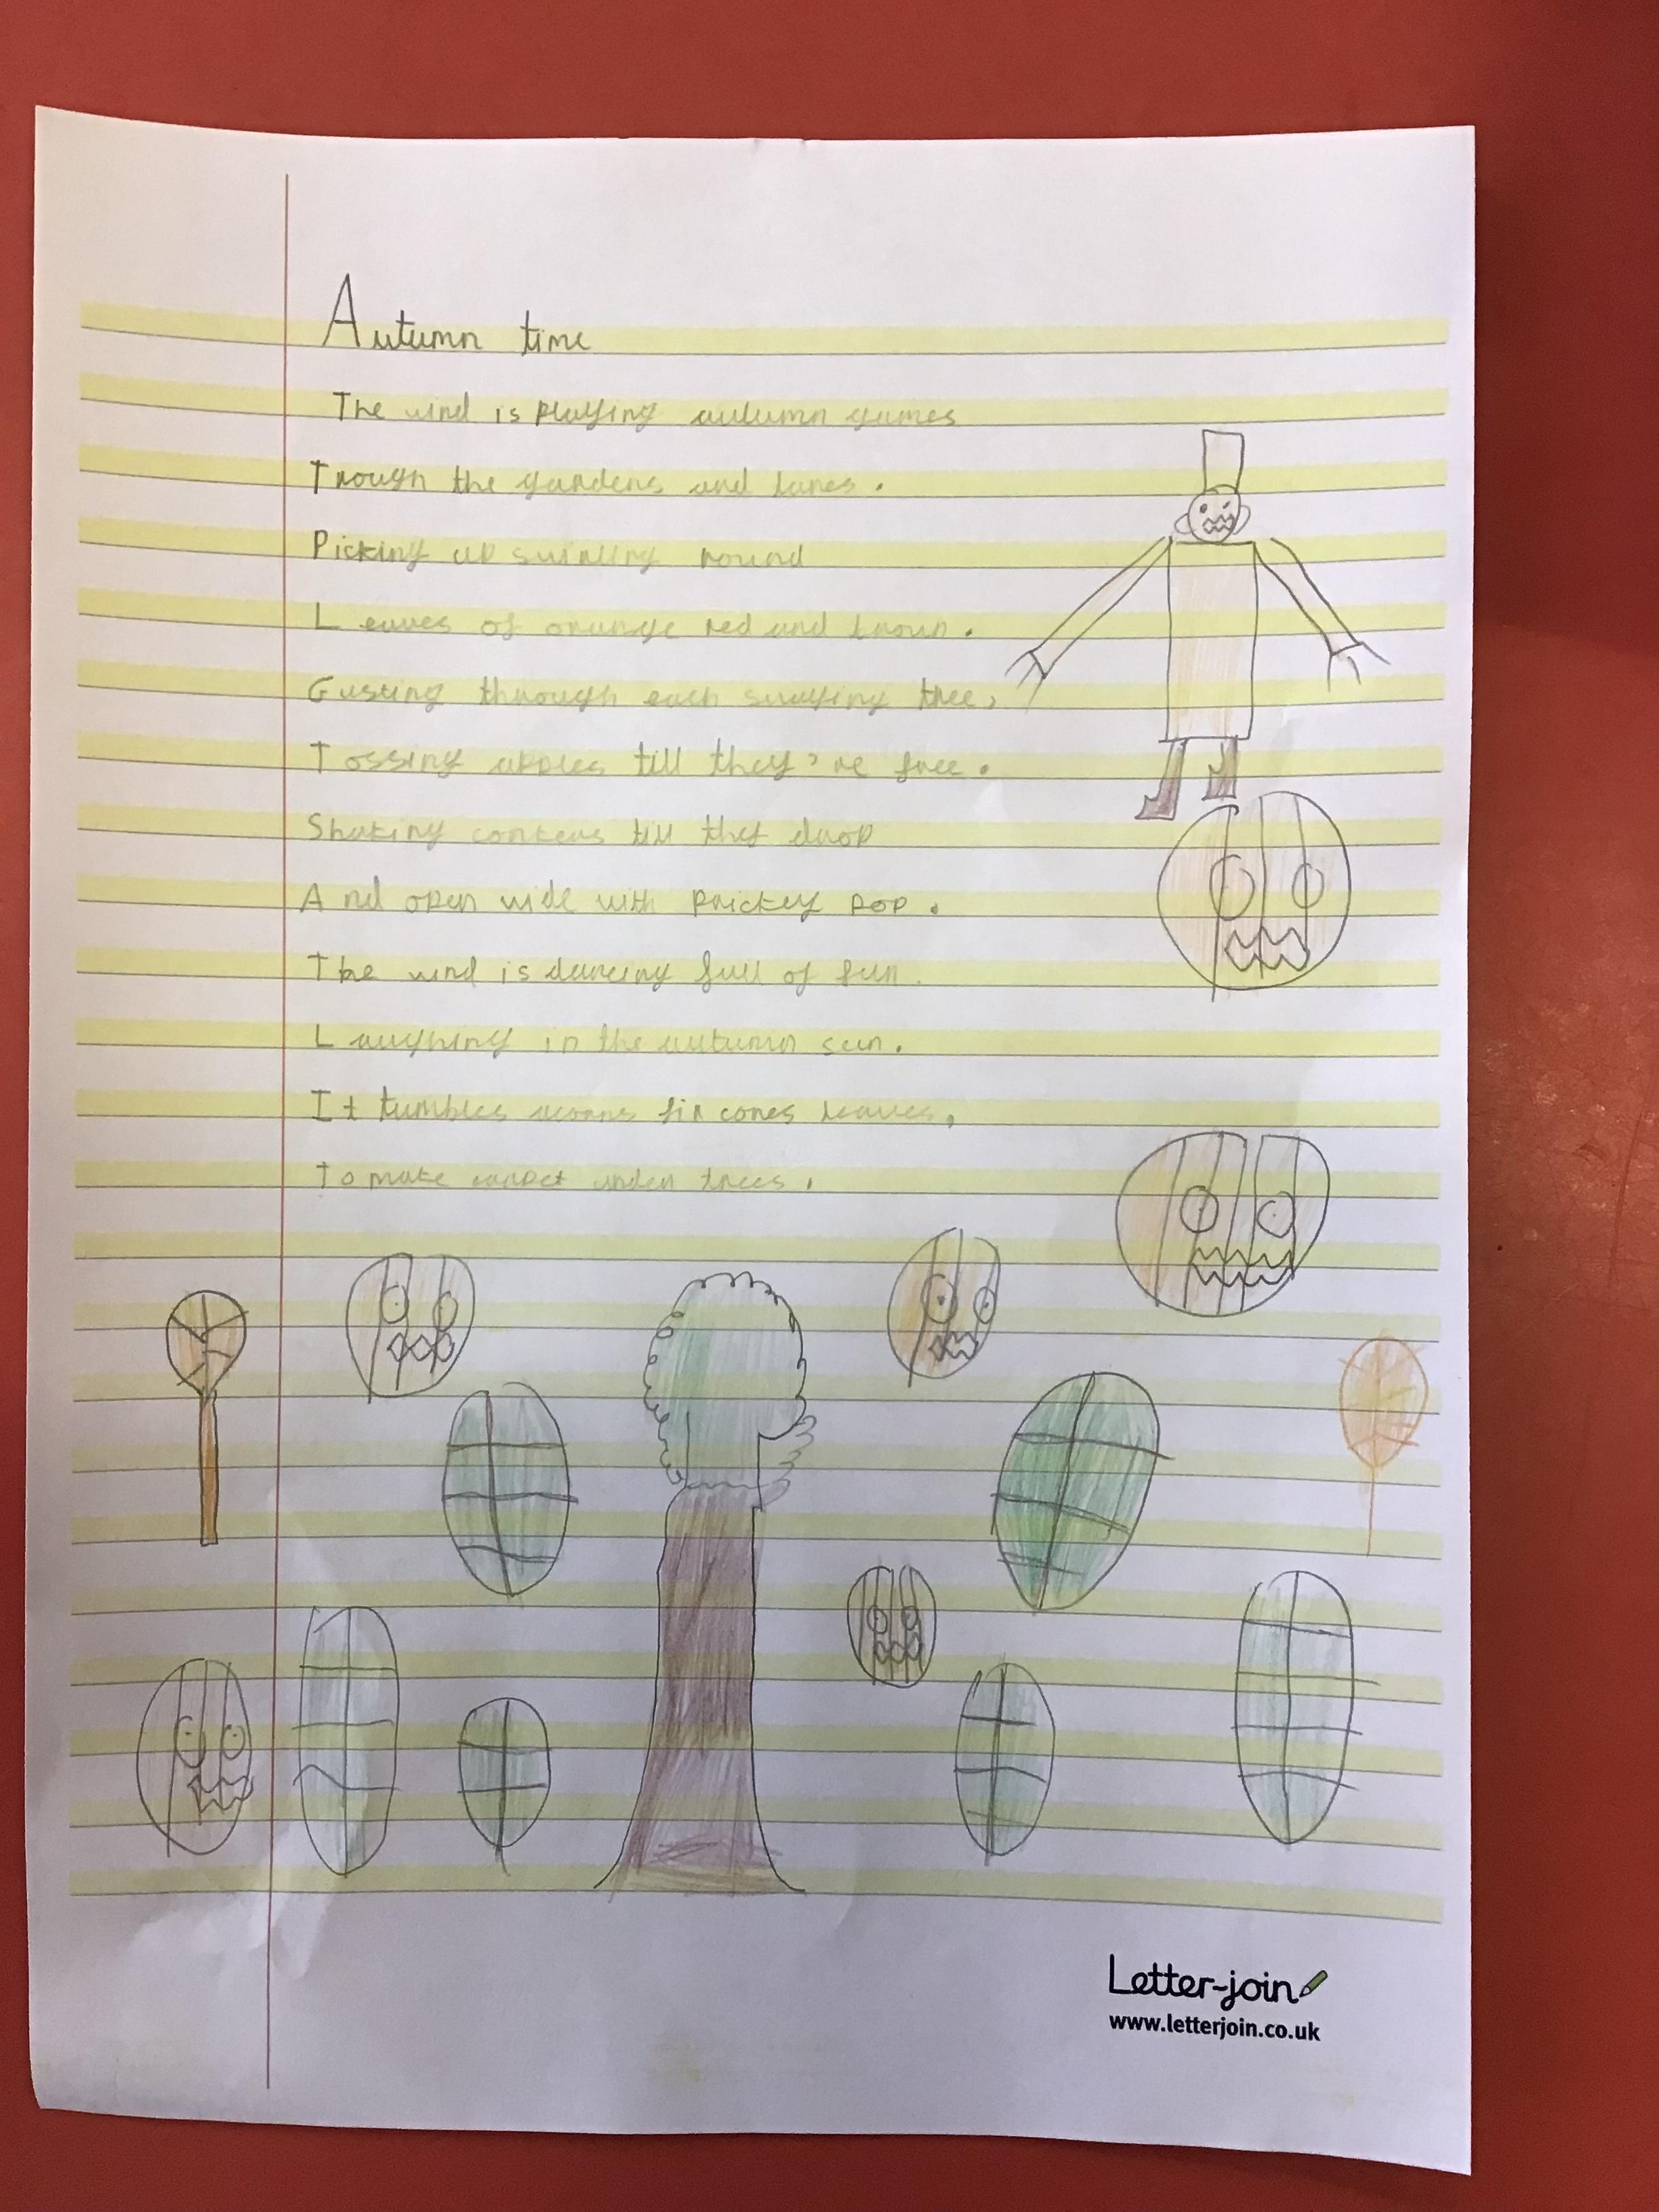 Autumn time
The wind is playing autumn games
Trough the gardens and lanes.
Picking up swirling round
Leaves of orange red and brown.
Gusting through each swaying tree,
Tossing apples till they're free.
Shaking conkers till they drop
And open wide with prickey pop.
The wind is dancing full of fun.
Laughing in the autumn sun.
It tumbles acorns fir cones leaves,
To make carpet under trees.
Letter-join
www.letterjoin.co.uk